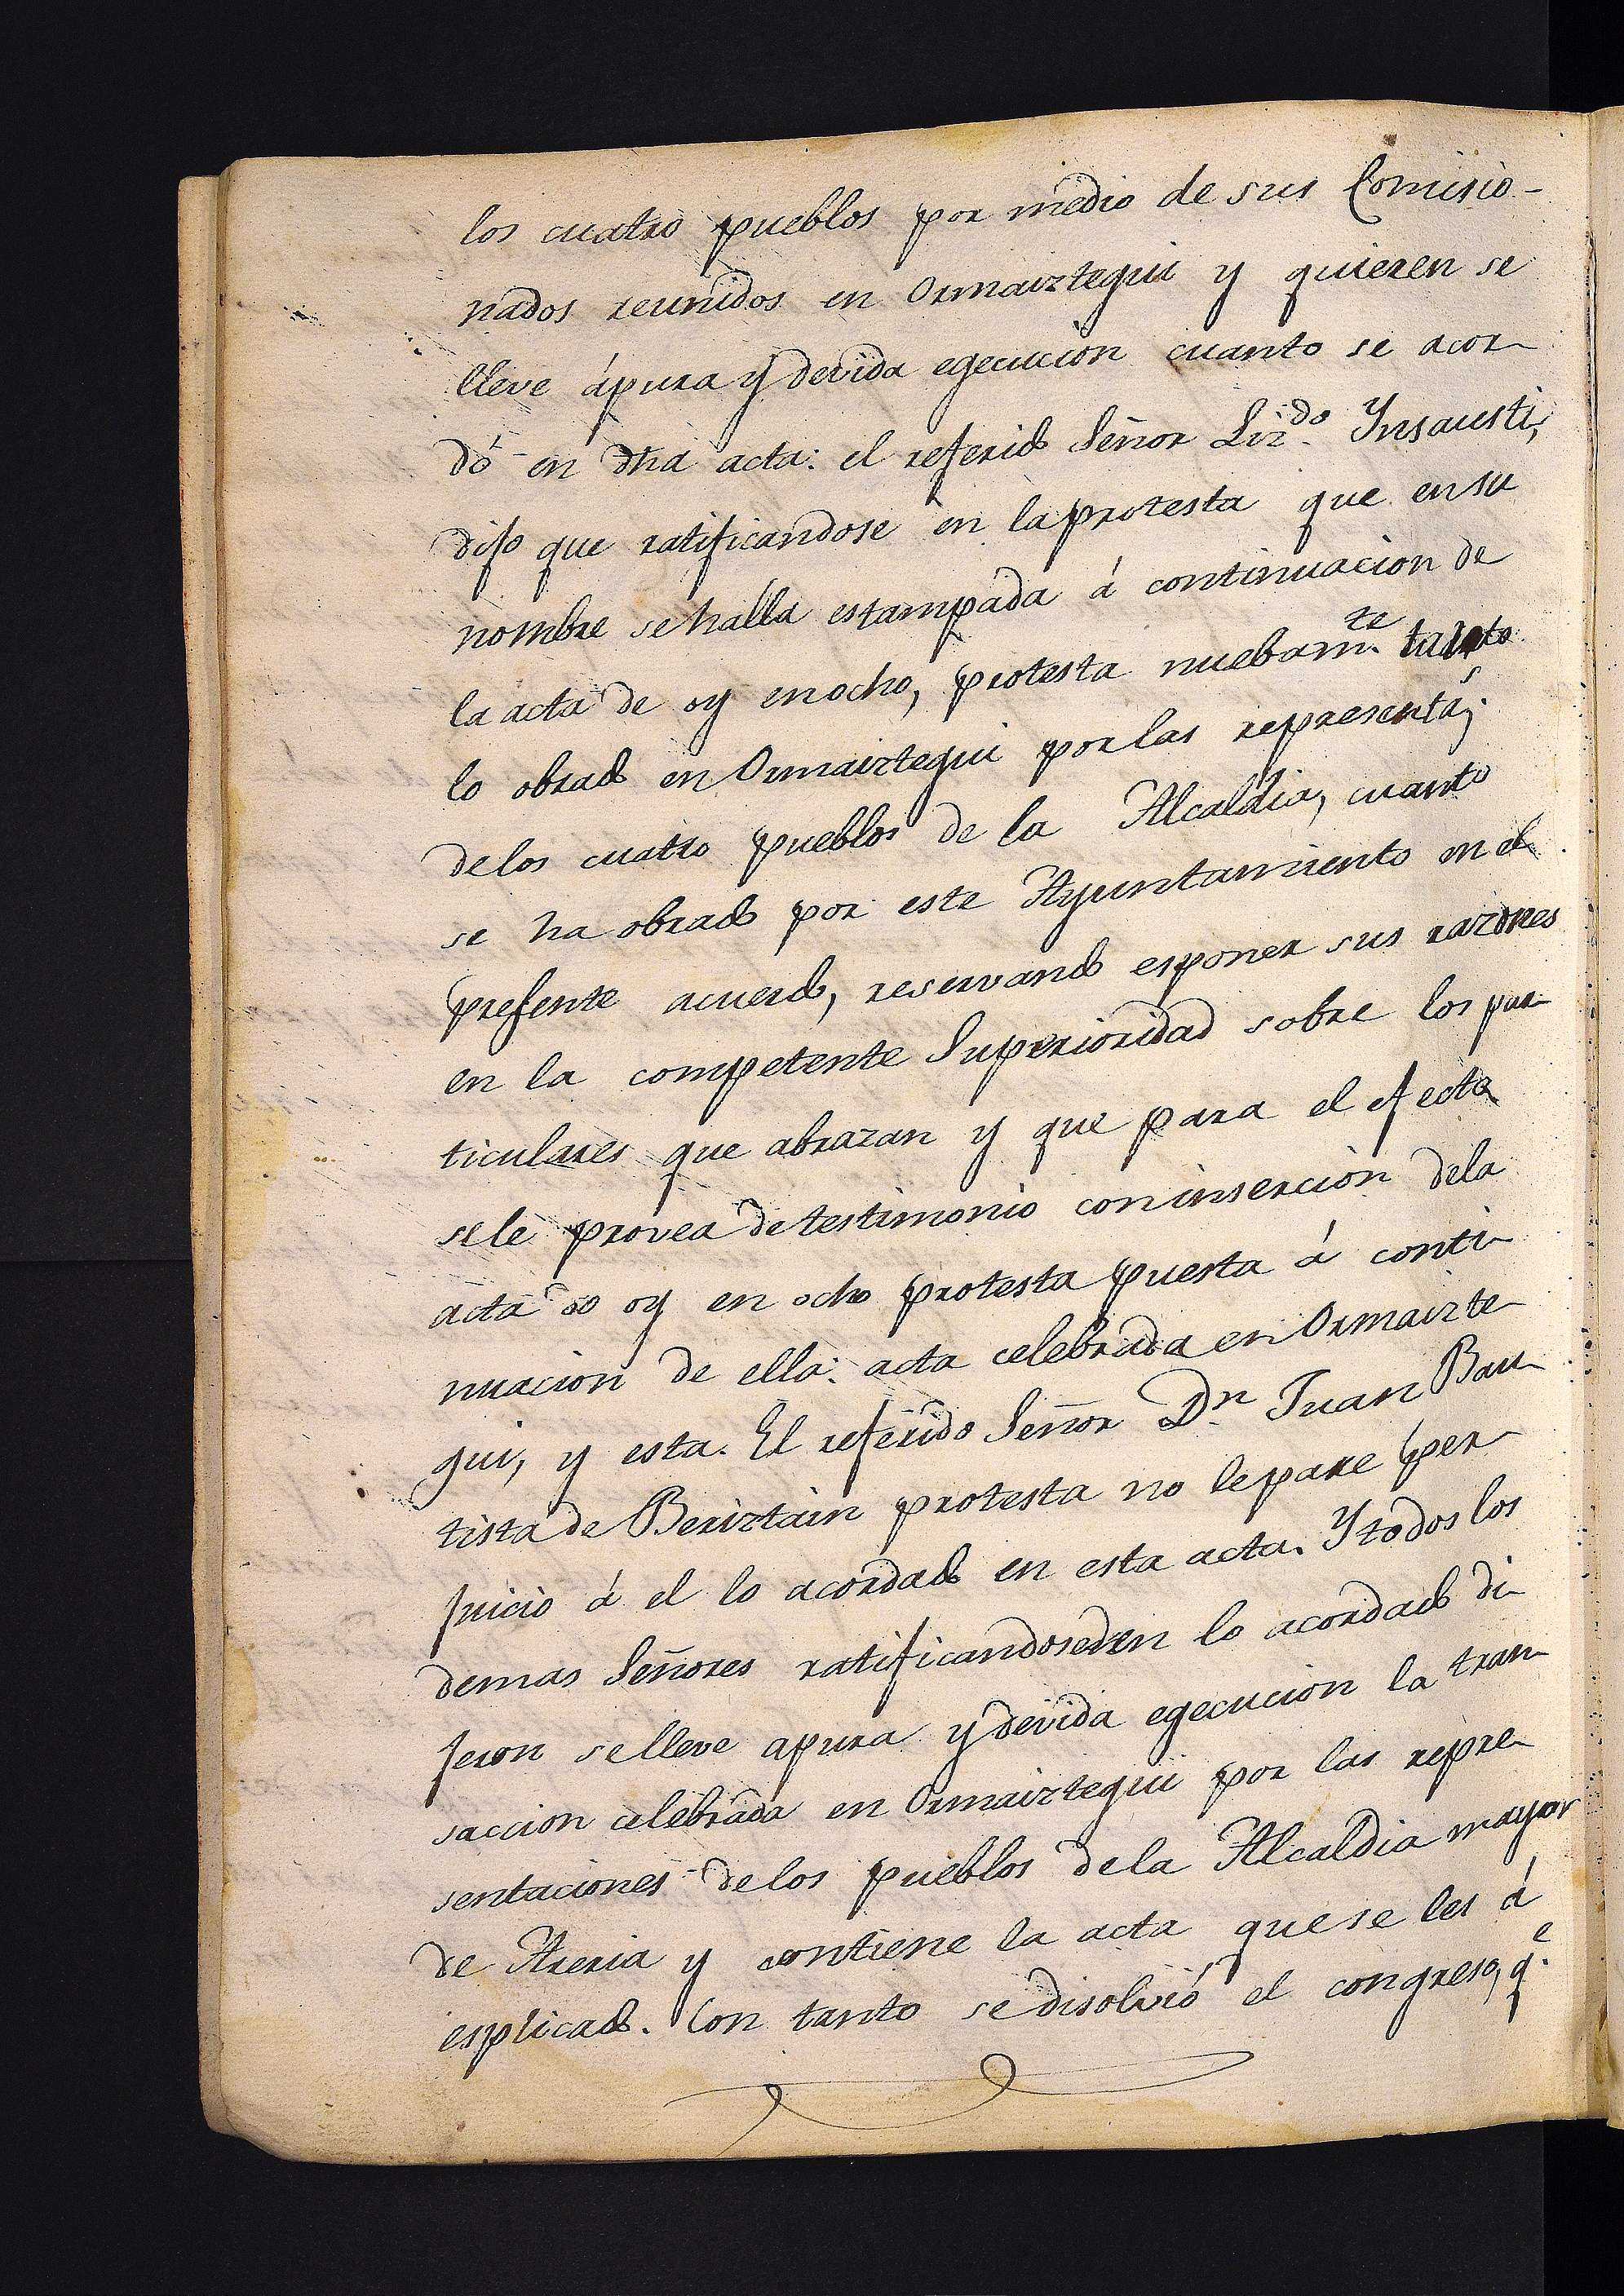 los cuatro pueblos por medio de sus Comisio-
nados reunidos en Ormaiztegui y quieren se
lleve ápura y devida egecución cuanto se acor-
dó en dha acta: el referido Señor Liz.do Ynsausti,
dijo que ratificandose en la protesta que en su
nombre se halla estampada á continuacion de
la acta de oy en ocho, protesta nuebam.te tanto
lo obrado en Ormaiztegui por las representa.s
de los cuatro pueblos de la Alcaldia, cuanto
se ha obrado por este Ayuntamiento en el
presente acuerdo, reservando esponer sus razones
en la competente Superioridad sobre los par-
ticulares que abrazan y que para el efecto
se le provea de testimonio con insercion dela
acta de oy en ocho protesta puesta á conti-
nuacion de ella: acta celebrada en Ormaizte-
gui, y esta. El referido Señor Dn Juan Bau-
tista de Beriztain protesta no le pare per-
juicio á el lo acordado en esta acta. Y todos los
demas Señores ratificandose en lo acordado di-
jeron se lleve apura y devida egecucion la tran-
saccion celebrada en Ormaiztegui por las repre-
sentaciones de los pueblos de la Alcaldia mayor
de Areria y contiene la acta que se les á
esplicado. Con tanto se disolvió el congreso, q.e